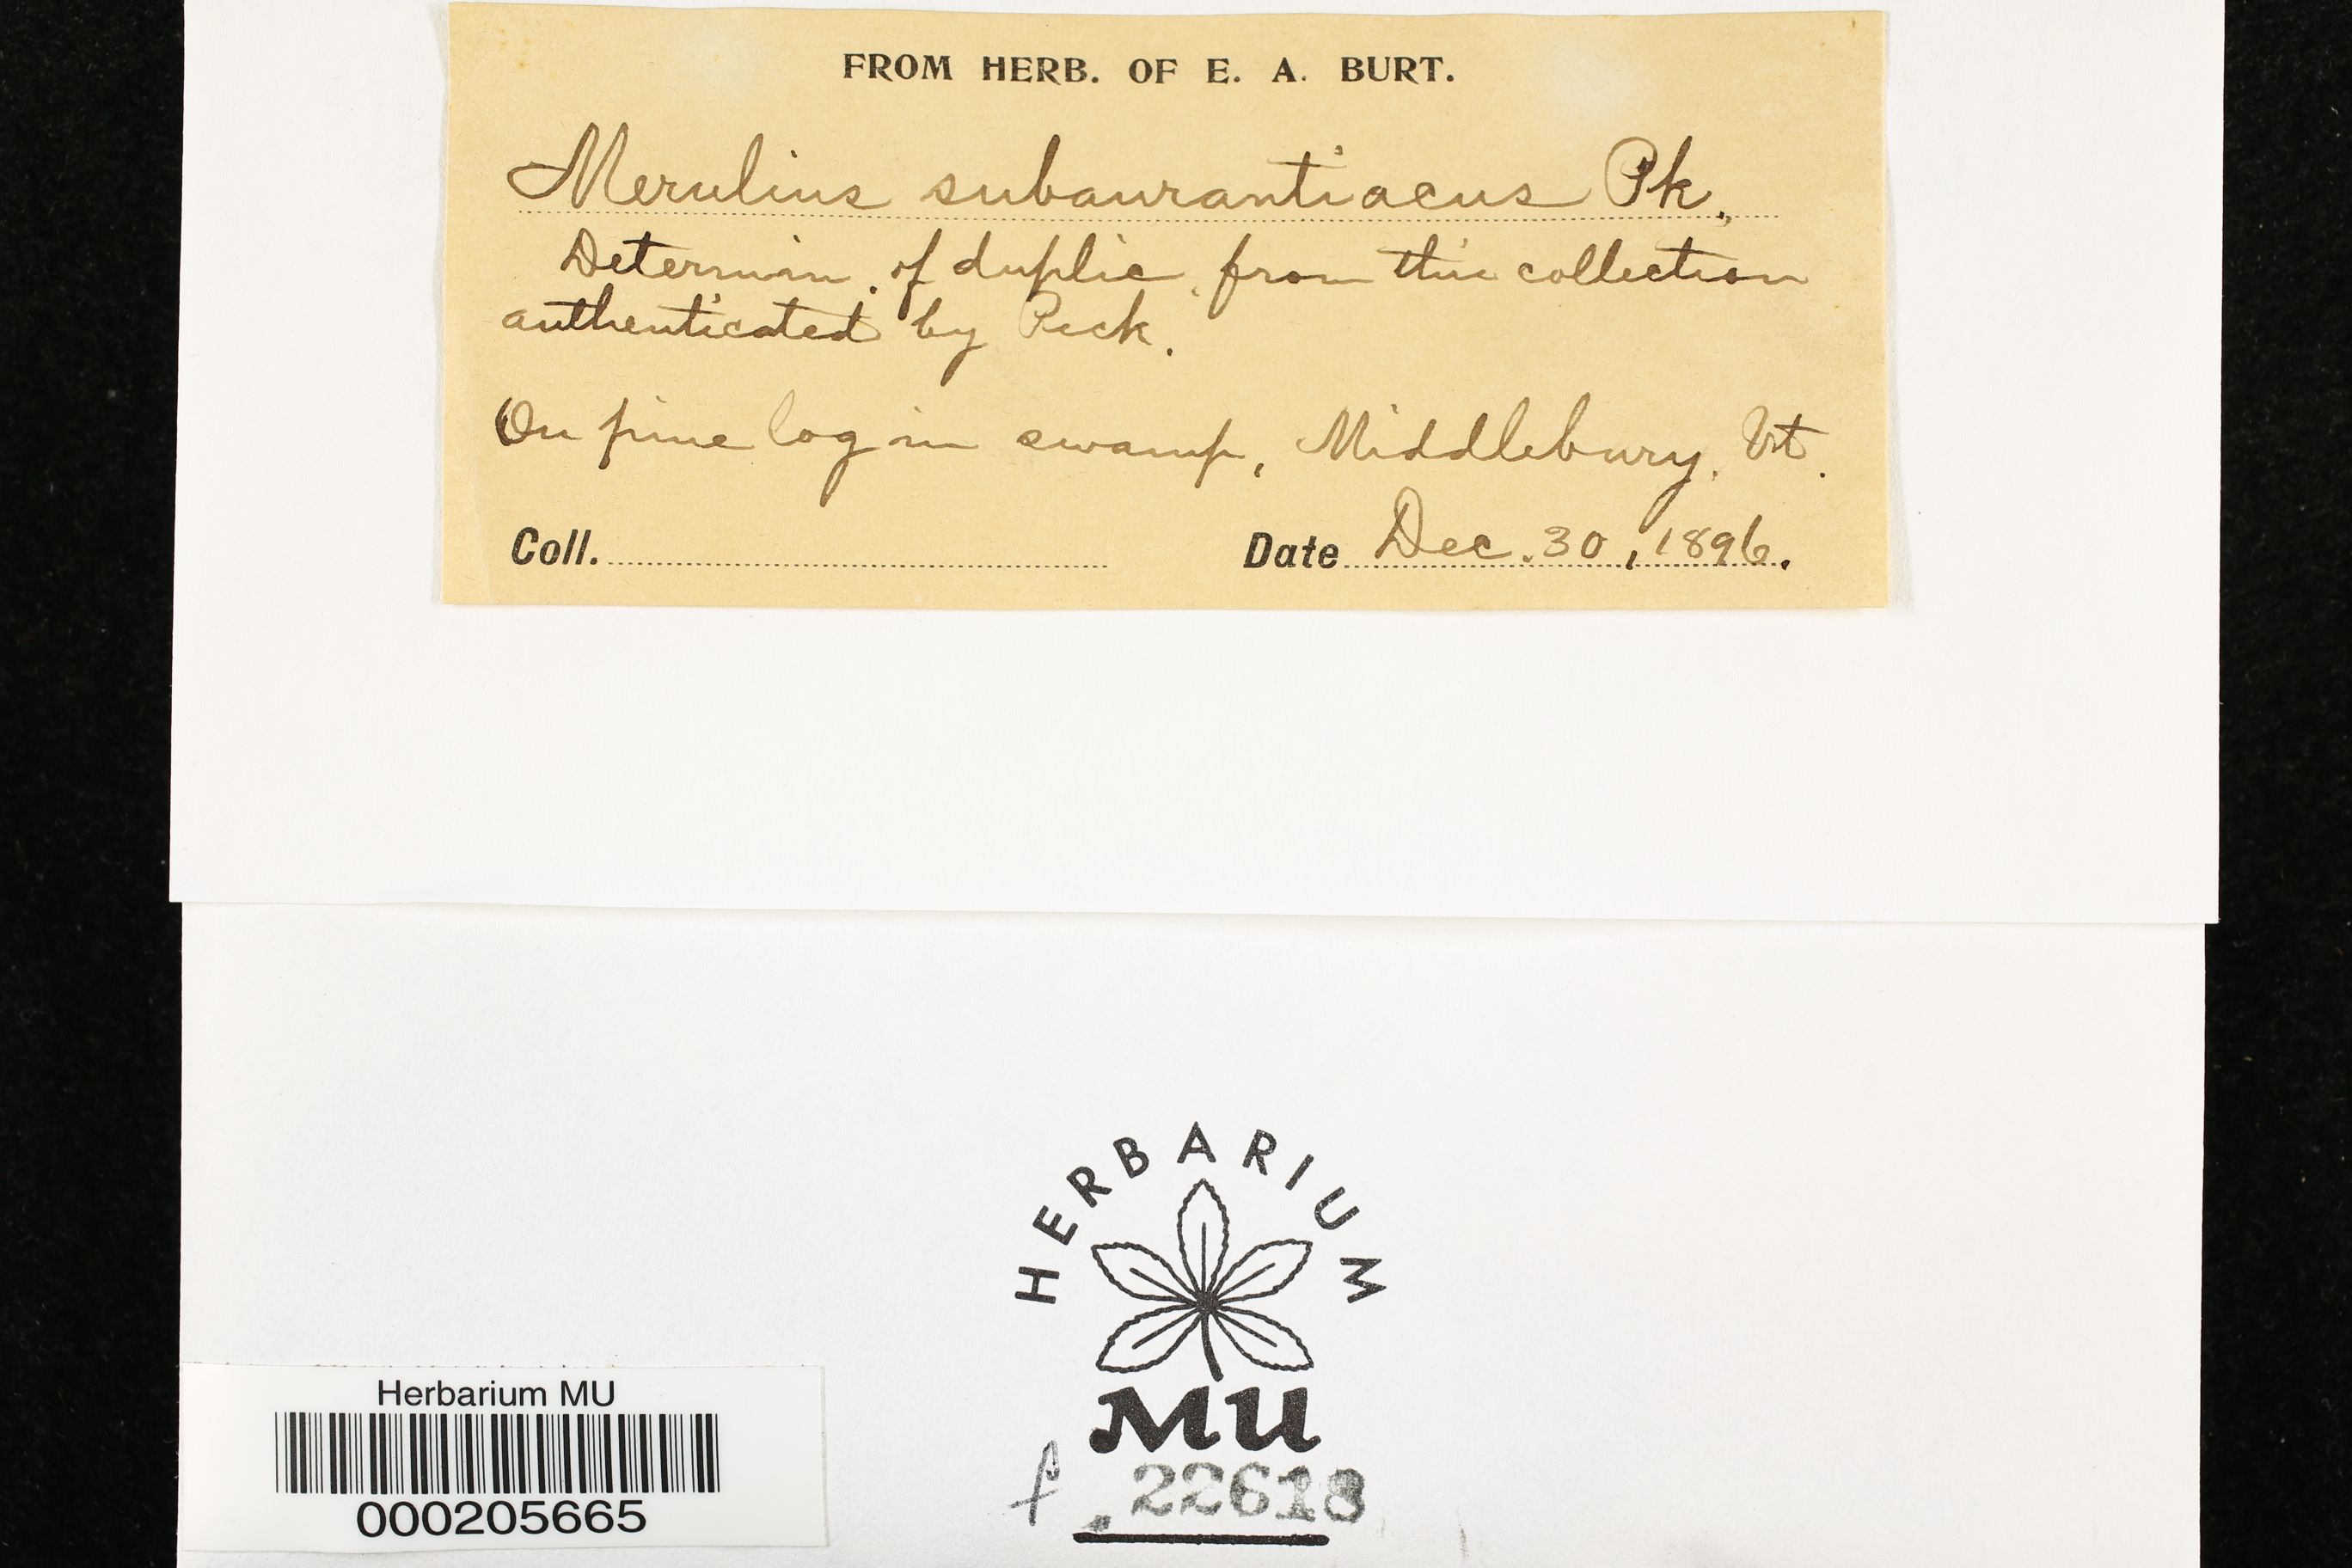 FROM HERB. OF E. A. BURT.
Merulius subaurantiacus Pk.
Determin. of duplic. from this collection
authenticated by Peck.
On pine log in swamp, Middlebury, Vt.
Coll. Date Dec. 30, 1896.
HERBARIUM
MU
f. 22618
Herbarium MU
000205665